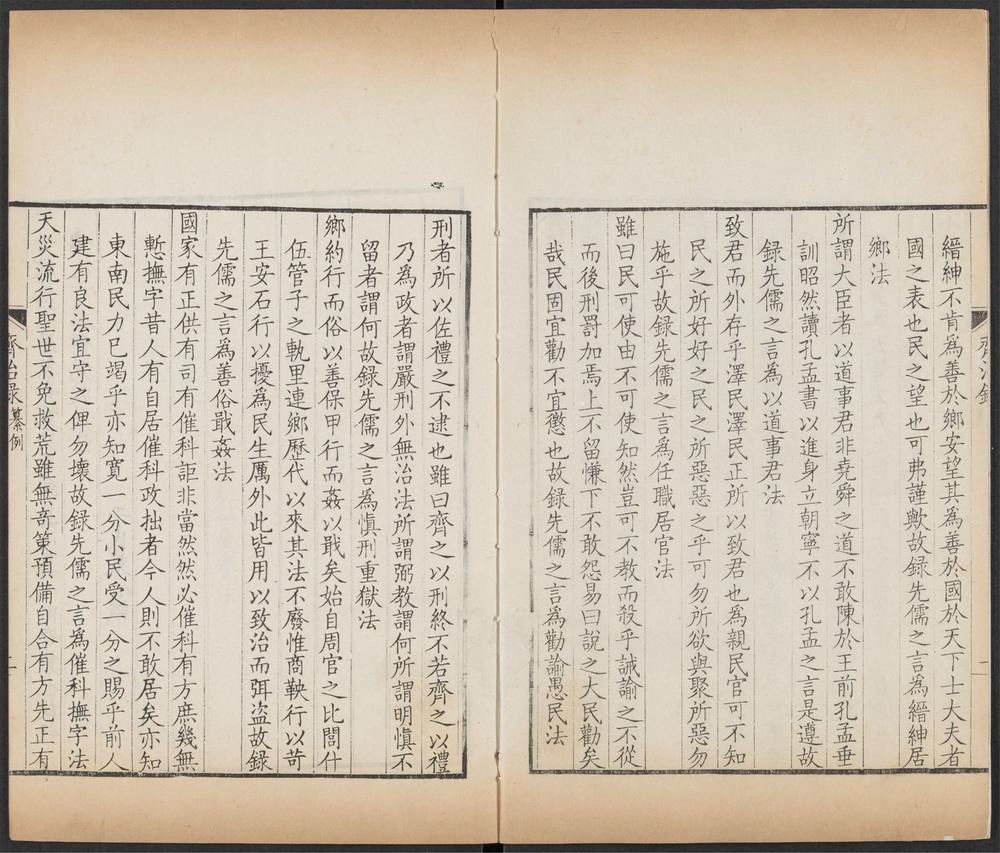 縉紳不肯為善於鄉安望其為善於國於天下士大夫者
國之表也民之望也可弗謹歟故録先儒之言為縉紳居
鄉法
所謂大臣者以道事君非堯舜之道不敢陳於王前孔孟垂
訓昭然讀孔孟書以進身立朝寧不以孔孟之言是遵故
録先儒之言為以道事君法
致君而外存乎澤民澤民正所以致君也為親民官可不知
民之所好好之民之所惡惡之乎可勿所欲與聚所惡勿
施乎故録先儒之言為任職居官法
雖曰民可使由不可使知然豈可不教而殺乎誡諭之不從
而後刑罰加焉上不留慊下不敢怨易曰說之大民勸矣
哉民固宜勸不宜懲也故録先儒之言為勸諭愚民法
刑者所以佐禮之不逮也雖曰齊之以刑終不若齊之以禮
乃為政者謂嚴刑外無治法所謂弼教謂何所謂明慎不
留者謂何故録先儒之言為慎刑重獄法
鄉約行而俗以善保甲行而姦以戢矣始自周官之比閭什
伍管子之軌里連鄉歷代以來其法不廢惟商鞅行以苛
王安石行以擾為民生厲外此皆用以致治而弭盗故録
先儒之言為善俗戢姦法
國家有正供有司有催科詎非當然然必催科有方庶幾無
慙撫字昔人有自居催科政拙者今人則不敢居矣亦知
東南民力已竭乎亦知寬一分小民受一分之賜乎前人
建有良法宜守之俾勿壞故録先儒之言為催科撫字法
天災流行聖世不免救荒雖無奇策預備自合有方先正有
齊治録
纂例
二